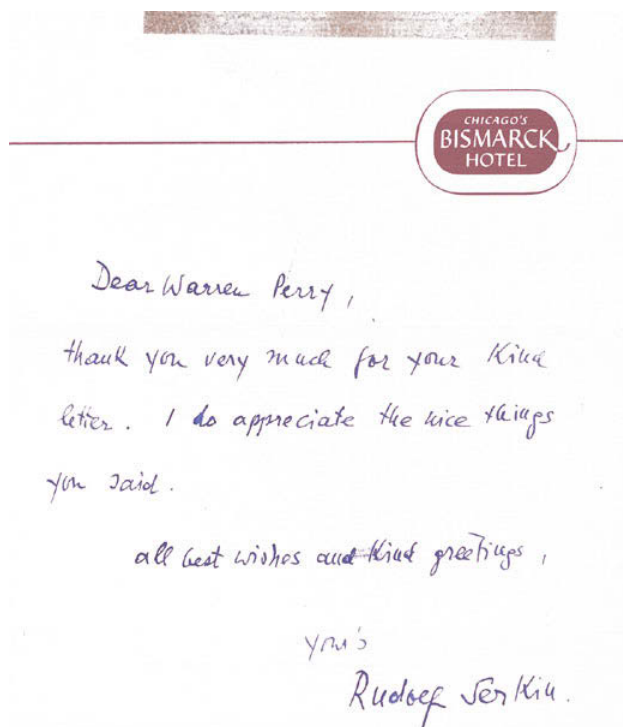 CHICAGO'S
BISMARCK
HOTEL
Dear Warren Perry,
thank you very much for your Kind
letter. I do appreciate the nice things
you said.
all best wishes and Kind greetings,
your's
Rudolf Serkin.